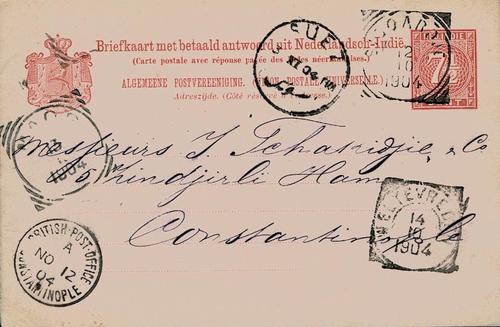 Briefkaart met betaald antwoord uit Nederlandsch-Indië.
(Carte postale avec réponse payée des Indes néerlandaises.)
ALGEMEENE POSTVEREENIGING. (UNION POSTALE UNIVERSELLE.)
Adreszijde. (Côté réservé à l'adresse.)
7½
12
10
1904
Messieurs J. Tchakidjie & Co
Zindjirli Han
Constantinople
1904
WELTEVREDEN
14
10
1904
BRITISH-POST-OFFICE
A
NO 12
04
CONSTANTINOPLE